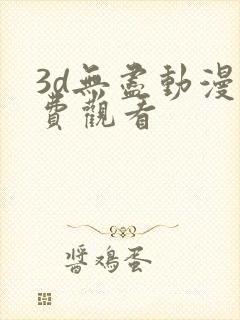 3d無盡動漫
費觀看
醬鴉蛋